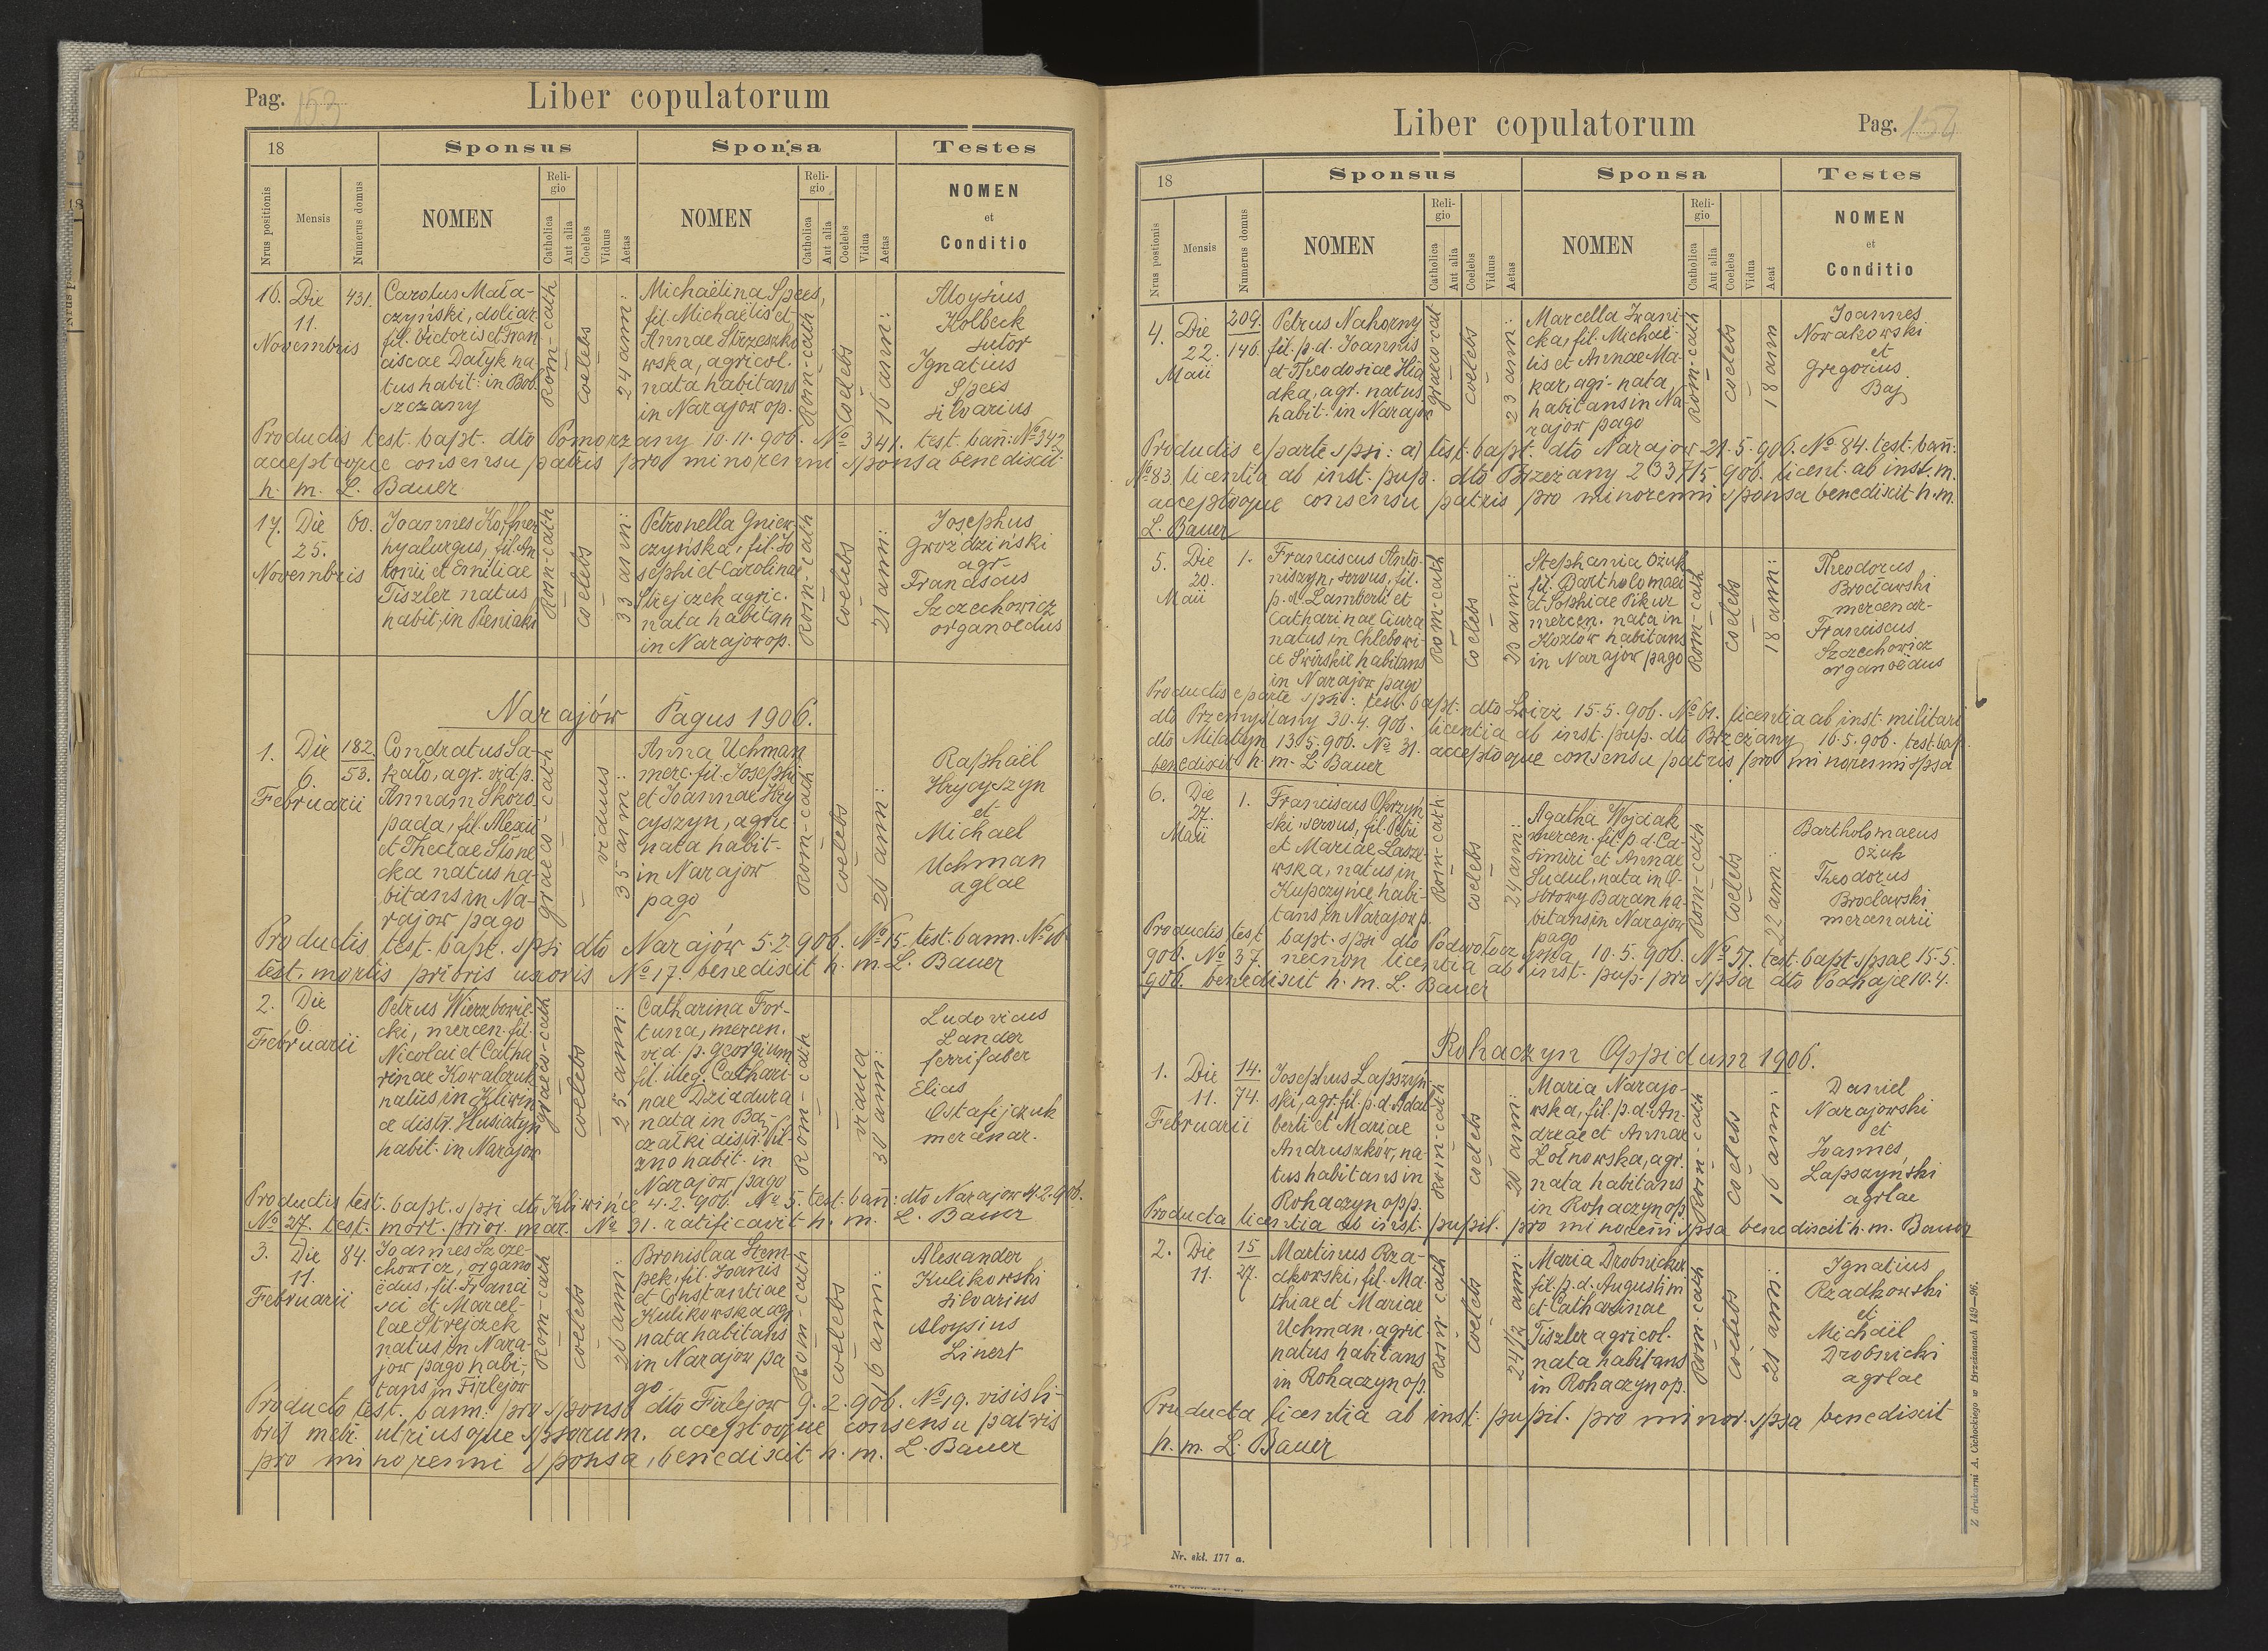 Pag. 153
Liber copulatorum
18
Sponsus
Sponsa
Testes
Nrus positionis
Mensis
Numerus domus
NOMEN
Religio
Catholica
Aut alia
Coelebs
Viduus
Aetas
NOMEN
Religio
Catholica
Aut alia
Coelebs
Vidua
Aetas
NOMEN
et
Conditio
16. Die
11.
Novembris
431.
Carolus Mała-
czyński, doliar.
fil. Victoris et Fran
ciscae Datyk na
tus habit: in Bob.
szczany
Rom-cath
coelebs
24 ann:
Michaëlina Spees,
fil. Michaëlis et
Annae Strzeszko
wska, agricol.
nata habitans
in Narajow op.
Rom-cath
Coelebs
16 ann:
Aloysius
Kolbeck
sutor
Ignatius
Spees
silvarius
Productis test. bapt. dto Pomorzany 10.11.906. No 341. test. bañ: No 342
acceptoque consensu patris pro minorenni sponsa benedixit
h. m. L. Bauer
17. Die
25.
Novembris
60.
Joannes Koffner
hyalurgus, fil. An
tonii et Emiliae
Tiszler natus
habit, in Pieniaki
Rom-cath
coelebs
33 ann:
Petronella Gniew-
czyńska, fil. Jo
sephi et Carolinae
Strejczek agric.
nata habitan
in Narajow op.
Rom-cath
coelebs
21 ann:
Josephus
Gwoździński
agr-
Franciscus
Szczechowicz
organoedus
Narajów Pagus 1906.
1. Die
6.
Februarii
182.
53.
Condratus Sa-
kało, agr. vid p.
Annam Skoro
pada, fil. Alexii
et Theclae Słone
cka natus ha-
bitans in Na-
rajow pago
graeco-cath
viduus
35 ann:
Anna Uchman
merc. fil. Josephi
et Joannae Hry
cyszyn, agric
nata habit-
in Narajow
pago
Rom-cath
coelebs
26 ann:
Raphaël
Hrycyszyn
et
Michael
Uchman
aglae
Productis test. bapt. spsi dto Narajów 5.2.906. No 15. test. bann. No 16
test. mortis prioris uxoris No 17. benedixit h. m. L. Bauer
2. Die
6.
Februarii
Petrus Wierzbowie-
cki, mercen. fil.
Nicolai et Catha
rinae Kowalczuk
natus in Kliwin
ce distr. Husiatyn
habit. in Narajow
graeco-cath
coelebs
25 ann:
Catharina For-
tuna, mercen.
vid. p. Georgium
fil. illeg. Cathari
nae Dziadura
nata in Bą-
czałki distr. Pil-
zno habit. in
Narajow pago
Rom-cath
vidua
30 ann:
Ludovicus
Lander
ferrifaber
Elias
Ostafijczuk
mercenar.
Productis test. bapt. spsi dto Kliwińce 4.2.906. No 5. test. bañ: dto Narajow 4.2.906.
No 27. test. mort. prior. mar. No 31. ratificavit h. m. L. Bauer
3. Die
11.
Februarii
84.
Joannes Szcze-
chowicz, organo
edus, fil. Franci
sci et Marcel-
lae Strejczek
natus in Nara-
jow pago habi-
tans in Firlejow
Rom-cath
coelebs
26 ann:
Bronislaa Stem-
pek, fil. Joanis
et Constantiae
Kulikowska agr
nata habitans
in Narajow pa
go
Rom-cath
coelebs
16 ann:
Alexander
Kulikowski
silvarius
Aloysius
Linert
Producto test. bann: pro sponso dto Firlejow 9. 2. 906. No 19. visis li-
bris metr. utriusque spsorum. acceptoque consensu patris
pro minorenni sponsa, benedixit h. m. L. Bauer
Liber copulatorum
Pag. 154
18
Sponsus
Sponsa
Testes
Nrus postionis
Mensis
Numerus domus
NOMEN
Religio
Catholica
Aut alia
Coelebs
Viduus
Aetas
NOMEN
Religio
Catholica
Aut alia
Coelebs
Vidua
Aeat
NOMEN
et
Conditio
4. Die
22.
Maii
209.
146.
Petrus Nahorny
fil. p. d. Joannis
et Theodosiae Hła
dka, agr. natus
habit. in Narajow
graeco-cat
coelebs
23 ann:
Marcella Iwani-
cka, fil. Michaë-
lis et Annae Ma-
kar, agr. nata,
habitans in Na
rajow pago
Rom-cath
coelebs
18 ann
Joannes
Nowakowski
et
Gregorius
Baj
Productis e parte spsi: a) test. bapt. dto Narajow 21.5.906. No 84. test. bañ:
No 83. licentia ab inst. pup. dto Brzeżany 23375 906. licent. ab inst. m.
acceptoque consensu patris pro minorenni sponsa benedixit h.m.
L. Bauer
5. Die
20.
Maii
1.
Franciscus Anto-
niszyn, servus, fil.
p. d. Lamberti et
Catharinae Ciura
natus in Chlebowi-
ce Świrskie habitans
in Narajow pago
Rom-cath
coelebs
23 ann:
Stephania Ożuk
fil. Bartholomaei
et Sophiae Pikur
mercen. nata in
Kozłów habitans
in Narajow pago
Rom-cath
coelebs
18 ann:
Theodorus
Brocławski
mercenar-
Franciscus
Szczechowicz
organoëdus
Productis e parte spsi: test. bapt. dto Świrz 15.5.906. No 61. licentia ab inst. militari
dto Przemyślany 30.4.906. licentia ab inst. pup. dto Brzeżany 16.5.906. test. bap.
dto Milatyn 13.5.906. No 31. acceptoque consensu patris pro minorenni spsa
benedixit h. m. L. Bauer
6. Die
27.
Maii
1.
Franciscus Oprzyń
ski, servus, fil. Petri
et Mariae Lasze-
wska, natus in
Kupczyńce, habi-
tans in Narajow p.
Rom-cath
coelebs
24 ann:
Agatha Wojdak
mercen. fil. p. d. Ca-
simiri et Annae
Sudul, nata in O-
strowy Baran ha-
bitans in Narajow
pago
Rom-cath
coelebs
22 ann:
Bartholomaeus
Ożuk
Theodorus
Brocławski
mercenarii
Productis test. bapt. spsi dto Podwołoczyska, 10.5.906. No 57. test. bapt. spsae 15.5.
906. No 37. necnon licentia ab inst. pup. pro spsa dto Podhajce 10.4.
906. benedixit h. m. L. Bauer
Rohaczyn Oppidum 1906.
1. Die
11.
Februarii
14.
74.
Josephus Łapszyń-
ski, agr. fil. p. d. Adal
berti et Mariae
Andruszków, na-
tus habitans in
Rohaczyn opp.
Rom-cath
coelebs
26 ann:
Maria Narajo-
wska, fil. p. d. An-
dreae et Annae
Żołnowska, agr.
nata habitans
in Rohaczyn op.
Rom-cath
coelebs
16 ann:
Daniel
Narajowski
et
Joannes
Łapszyński
agrlae
Producta licentia ab inst. pupil. pro minorenni spsa benedixit h. m. Bauer
2. Die
11.
15
27.
Martinus Rza-
dkowski, fil. Ma-
thiae et Mariae
Uchman, agric
natus habitans
in Rohaczyn op.
Rom-cath
coelebs
24 1/2 ann:
Maria Drobnicka
fil. p. d. Augustini
et Catharinae
Tiszler agricol.
nata habitans
in Rohaczyn op.
Rom-cath
coelebs
21 ann:
Ignatius
Rzadkowski
et
Michaël
Drobnicki
agrlae
Producta licentia ab inst. pupil. pro minor. spsa benedixit
h. m. L. Bauer
Nr. skł. 177 a.
Z drukarni A. Cichockiego w Brzeżanach 149—96.